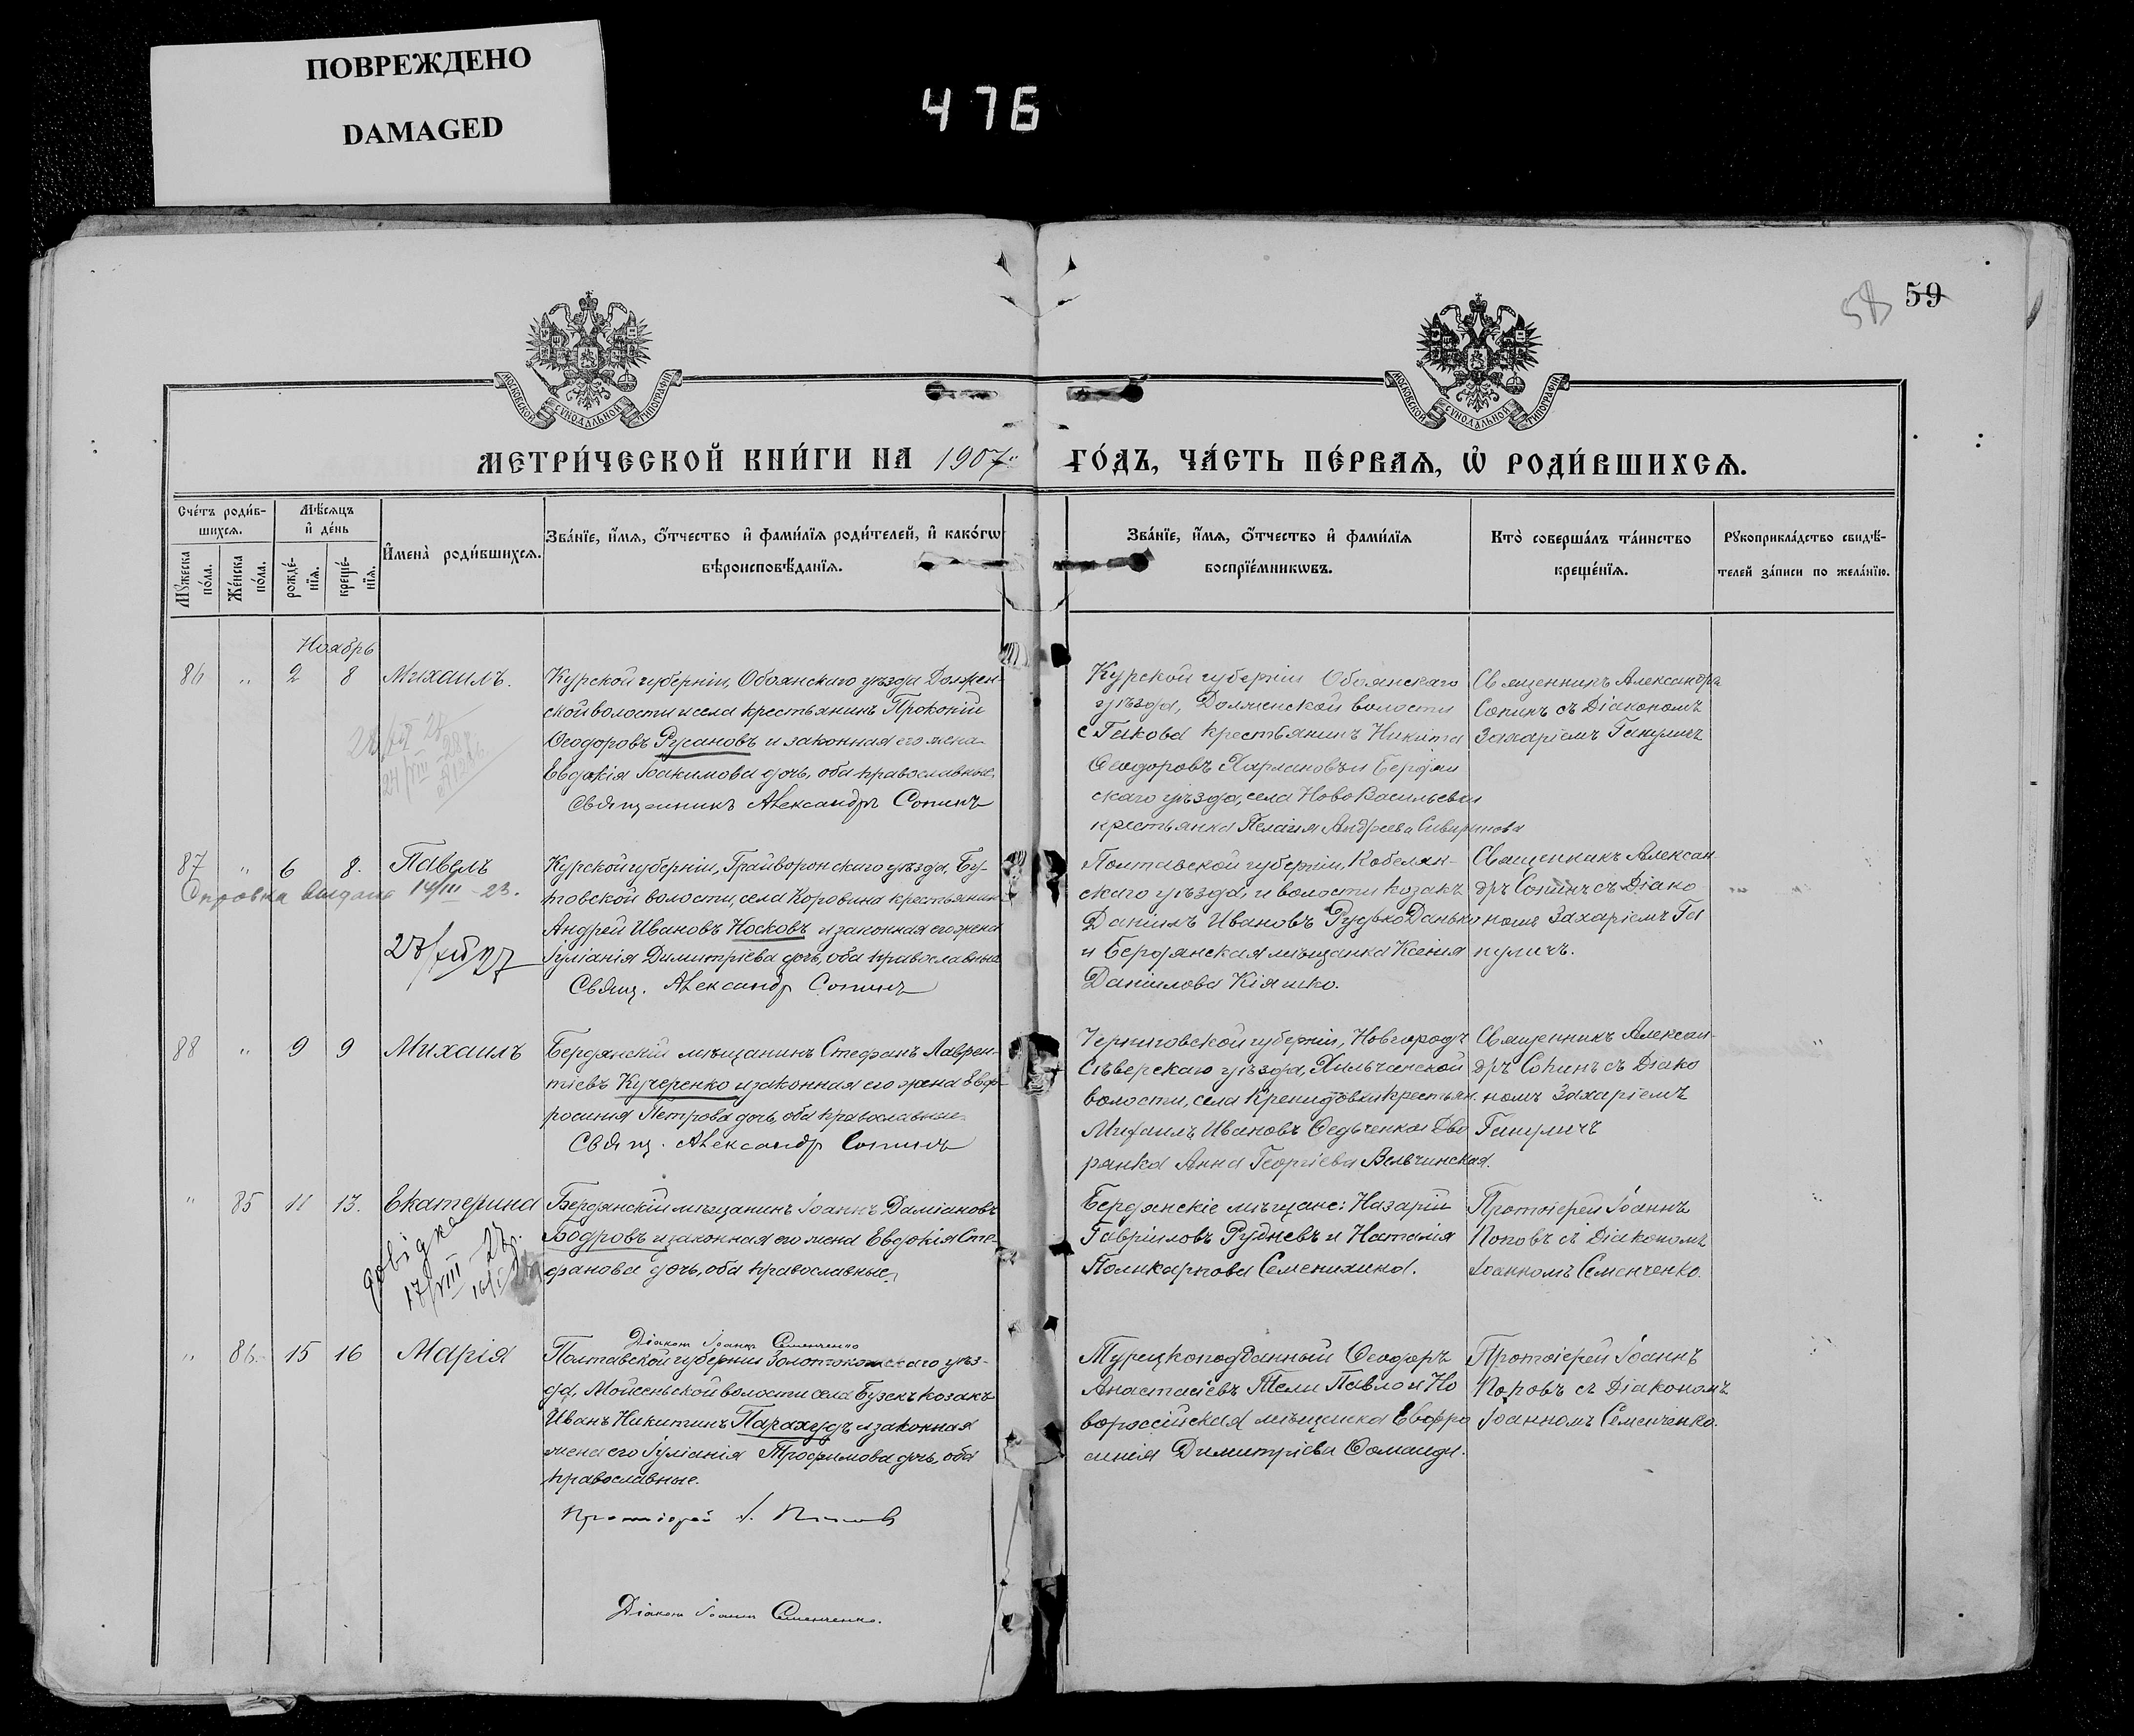 ПОВРЕЖДЕНО
DAMAGED
476
59
58
МОСКОВСКОЙ СѴНОДАЛЬНОЙ ТИПОГРАФІИ
МОСКОВСКОЙ СѴНОДАЛЬНОЙ ТИПОГРАФІИ
МЕТРИ́ЧЕСКОЙ КНИ́ГИ НА 1907 ГО́ДЪ, ЧА́СТЬ ПЕ́РВАЯ, Ѡ҆ РОДИ́ВШИХСЯ.
Сче́тъ роди́в-
шихся.
Мꙋ́жеска по́ла.
Же́нска по́ла.
Мѣ́сяцъ и҆ де́нь
рожде́-нїя.
креще́-нїя.
И҆мена̀ роди́вшихся.
Зва́нїе, и҆́мя, ѻ҆́тчество и҆ фами́лїя роди́телей, и҆ како́гѡ
вѣроисповѣ́данїя.
Зва́нїе, и҆́мя, ѻ҆́тчество и҆ фами́лїя
воспрїе́мникѡвъ.
Кто̀ соверша́лъ та́инство
креще́нїя.
Рꙋкоприкла́дство свидѣ́-
телей за́писи по жела́нїю.
Ноябрь
86 " 2 8 Михаилъ.
Курской губерніи, Обоянскаго уѣзда Должен-
ской волости и села крестьянинъ Прокопій
Ѳеодоровъ Русановъ и законная его жена
Евдокія Іоакимова дочь, оба православные.
Священникъ Александръ Сопинъ
Курской губерніи Обоянскаго
уѣзда, Долженской волости
крестьянинъ Никита
Ѳеодоровъ и Бердян
скаго уѣзда, села Ново Васильевки
крестьянка Пелагия Андреева
Священникъ Александръ
Сопинъ съ Діакономъ
Захаріемъ Гапуличъ
87 " 6 8. Павелъ
Справка выдана 14/III - 23.
Курской губерніи, Грайворонскаго уѣзда, Бу-
товской волости, села Коровина крестьянинъ
Андрей Ивановъ Носковъ и законная его жена
Іуліанія Димитріева дочь, оба православные
Свящ. Александр Сопинъ
Полтавской губерніи, Кобелян-
скаго уѣзда, и волости козакъ
Даніилъ Ивановъ
и Бердянская мѣщанка Ксенія
Даніилова Кіяшко.
Священникъ Алексан
дръ Сопинъ съ Діако
номъ Захаріемъ Га
пуличъ.
88 " 9 9 Михаилъ
Бердянскій мѣщанинъ Стефанъ Лаврен-
тіевъ Кучеренко и законная его жена Евф-
росинія Петрова дочь, оба православные
Свящ. Александр Сопинъ
Черниговской губерніи, Новгородъ
Сѣверскаго уѣзда, Хильчанской
волости, села крестьян.
Михаилъ Ивановъ Ѳедченко и Дво
рянка Анна Георгіева Вельчинская.
Священникъ Алексан-
дръ Сопинъ съ Діако
номъ Захаріемъ
Гапуличъ
" 85 11 13. Екатерина
довідка
17/VIII - 27.
Бердянскій мѣщанинъ Іоаннъ Даміановъ
Бодровъ и законная его жена Евдокія Сте-
фанова дочь, оба православные.
Діаконъ Іоаннъ Семенченко
Бердянскіе мѣщане: Назарій
Гавріиловъ Рудневъ и Наталія
Поликарпова Семенихина.
Протоіерей Іоаннъ
Поповъ съ Діакономъ
Іоанномъ Семенченко.
" 86 15 16 Марія
Полтавской губерніи Золотоношскаго уѣз-
да, Мойсенской волости села Бузекъ козакъ
Иванъ Никитинъ Параходъ и законная
жена его Іуліанія Трофимова дочь, оба
православные.
Протоіерей І. Поповъ
Діаконъ Іоаннъ Семенченко.
Турецкоподданный Ѳеодоръ
Анастасіевъ и Но
вороссійская мѣщанка Евфро
синія Димитріева
Протоіерей Іоаннъ
Поповъ съ Діакономъ
Іоанномъ Семенченко.